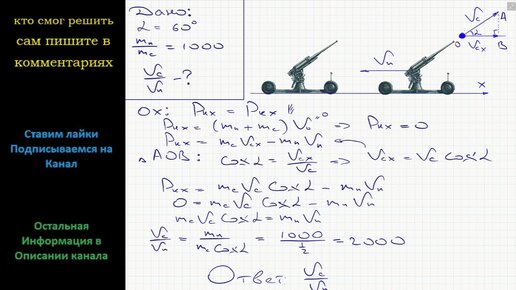 кто смог решить
сам пишите в
комментариях
Ставим лайки
Подписываемся на
Канал
Остальная
Информация в
Описании канала
Дано:
α = 60°
mп/mс = 1000
Vс/Vп - ?
Vс
A
α
O
Vсx
B
Vп
x
OX: Pнx = Pкx
Pнx = (mп + mс) V₀ = 0 => Pнx = 0
Pкx = mсVсx - mпVп
△AOB: Cosα = Vсx/Vс => Vсx = Vс Cosα
Pкx = mсVс Cosα - mпVп
0 = mсVс Cosα - mпVп
mсVс Cosα = mпVп
Vс/Vп = mп/(mс Cosα) = 1000/(1/2) = 2000
Ответ: Vс/Vп